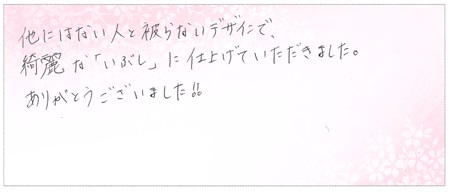 他にはない人と被らないデザインで、
綺麗な「いぶし」に仕上げていただきました。
ありがとうございました!!